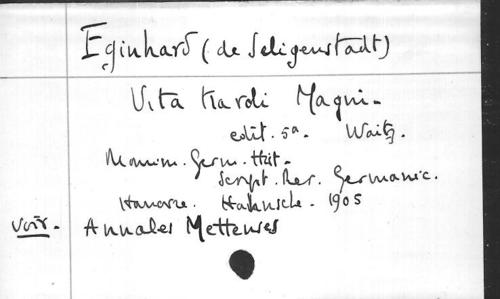 Eginhard (de Seligenstadt)
Vita Karoli Magni -
edit. 5a. Waitz.
Monum. Germ. Hist -
Script. Rer. Germanic.
Hanovre. Hahnsche - 1905
Voir - Annales Mettenses